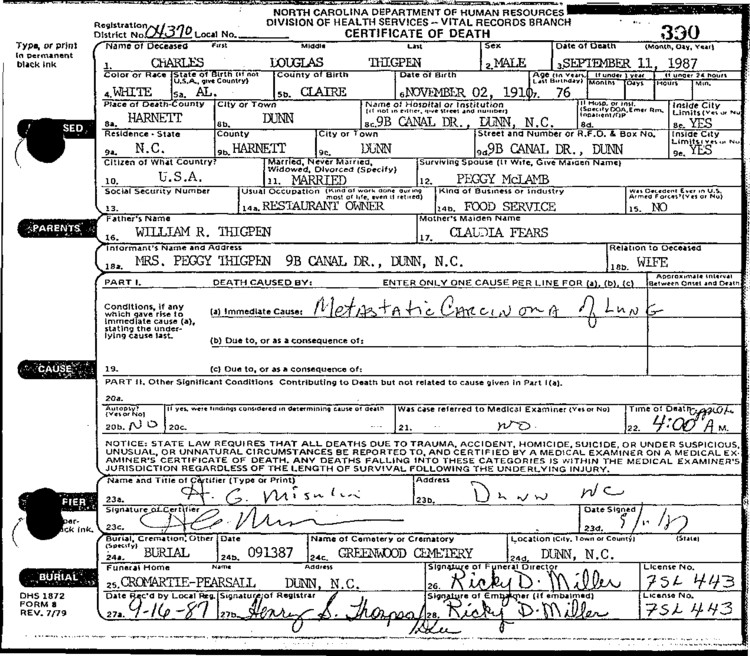 NORTH CAROLINA DEPARTMENT OF HUMAN RESOURCES
DIVISION OF HEALTH SERVICES – VITAL RECORDS BRANCH
CERTIFICATE OF DEATH
Registration District No. 04370 Local No. 330
Type, or print in permanent black ink
Name of Deceased First Middle Last Sex Date of Death (Month, Day, Year)
1. CHARLES DOUGLAS THIGPEN 2. MALE 3. SEPTEMBER 11, 1987
Color or Race State of Birth (If not U.S.A., give Country) County of Birth Date of Birth Age (in Years Last Birthday) If under 1 year If under 24 hours
Months Days Hours Min.
4. WHITE 5a. AL. 5b. CLAIRE 6 NOVEMBER 02, 1910 7. 76
Place of Death-County City or Town Name of Hospital or Institution (If not in either, give street and number) If Hosp. or Inst. (Specify DOA, Emer Rm, Inpatient/OP Inside City Limits (Yes or No)
8a. HARNETT 8b. DUNN 8c. 9B CANAL DR., DUNN, N.C. 8d. 8e. YES
Residence - State County City or Town Street and Number or R.F.D. & Box No. Inside City Limits (Yes or No)
9a. N.C. 9b. HARNETT 9c. DUNN 9d. 9B CANAL DR., DUNN 9e. YES
Citizen of What Country? Married, Never Married, Widowed, Divorced (Specify) Surviving Spouse (If Wife, Give Maiden Name)
10. U.S.A. 11. MARRIED 12. PEGGY McLAMB
Social Security Number Usual Occupation (Kind of work done during most of life, even if retired) Kind of Business or Industry Was Decedent Ever in U.S. Armed Forces? (Yes or No)
13. 14a. RESTAURANT OWNER 14b. FOOD SERVICE 15. NO
PARENTS
Father's Name Mother's Maiden Name
16. WILLIAM R. THIGPEN 17. CLAUDIA FEARS
Informant's Name and Address Relation to Deceased
18a. MRS. PEGGY THIGPEN 9B CANAL DR., DUNN, N.C. 18b. WIFE
PART I. DEATH CAUSED BY: ENTER ONLY ONE CAUSE PER LINE FOR (a), (b), (c) Approximate Interval Between Onset and Death
Conditions, if any which gave rise to immediate cause (a), stating the underlying cause last.
(a) Immediate Cause: Metastatic Carcinoma of Lung
(b) Due to, or as a consequence of:
CAUSE
19. (c) Due to, or as a consequence of:
PART II. Other Significant Conditions Contributing to Death but not related to cause given in Part I(a).
20a.
Autopsy? (Yes or No) If yes, were findings considered in determining cause of death Was case referred to Medical Examiner (Yes or No) Time of Death approx
20b. NO 20c. 21. NO 22. 4:00 A M.
NOTICE: STATE LAW REQUIRES THAT ALL DEATHS DUE TO TRAUMA, ACCIDENT, HOMICIDE, SUICIDE, OR UNDER SUSPICIOUS,
UNUSUAL, OR UNNATURAL CIRCUMSTANCES BE REPORTED TO, AND CERTIFIED BY A MEDICAL EXAMINER ON A MEDICAL EX-
AMINER'S CERTIFICATE OF DEATH. ANY DEATHS FALLING INTO THESE CATEGORIES IS WITHIN THE MEDICAL EXAMINER'S
JURISDICTION REGARDLESS OF THE LENGTH OF SURVIVAL FOLLOWING THE UNDERLYING INJURY.
Name and Title of Certifier (Type or Print) Address
23a. 23b. Dunn NC
Signature of Certifier Date Signed
23c. 23d.
Burial, Cremation, Other (Specify) Date Name of Cemetery or Crematory Location (City, Town or County) (State)
24a. BURIAL 24b. 091387 24c. GREENWOOD CEMETERY 24d. DUNN, N.C.
BURIAL
Funeral Home Name Address Signature of Funeral Director License No.
25. CROMARTIE-PEARSALL DUNN, N.C. 26. Ricky D. Miller 7SL 443
DHS 1872
FORM 8
REV. 7/79
Date Rec'd by Local Reg. Signature of Registrar Signature of Embalmer (If embalmed) License No.
27a. 9-16-87 27b. Henry S. Thompson 28. Ricky D. Miller 7SL 443